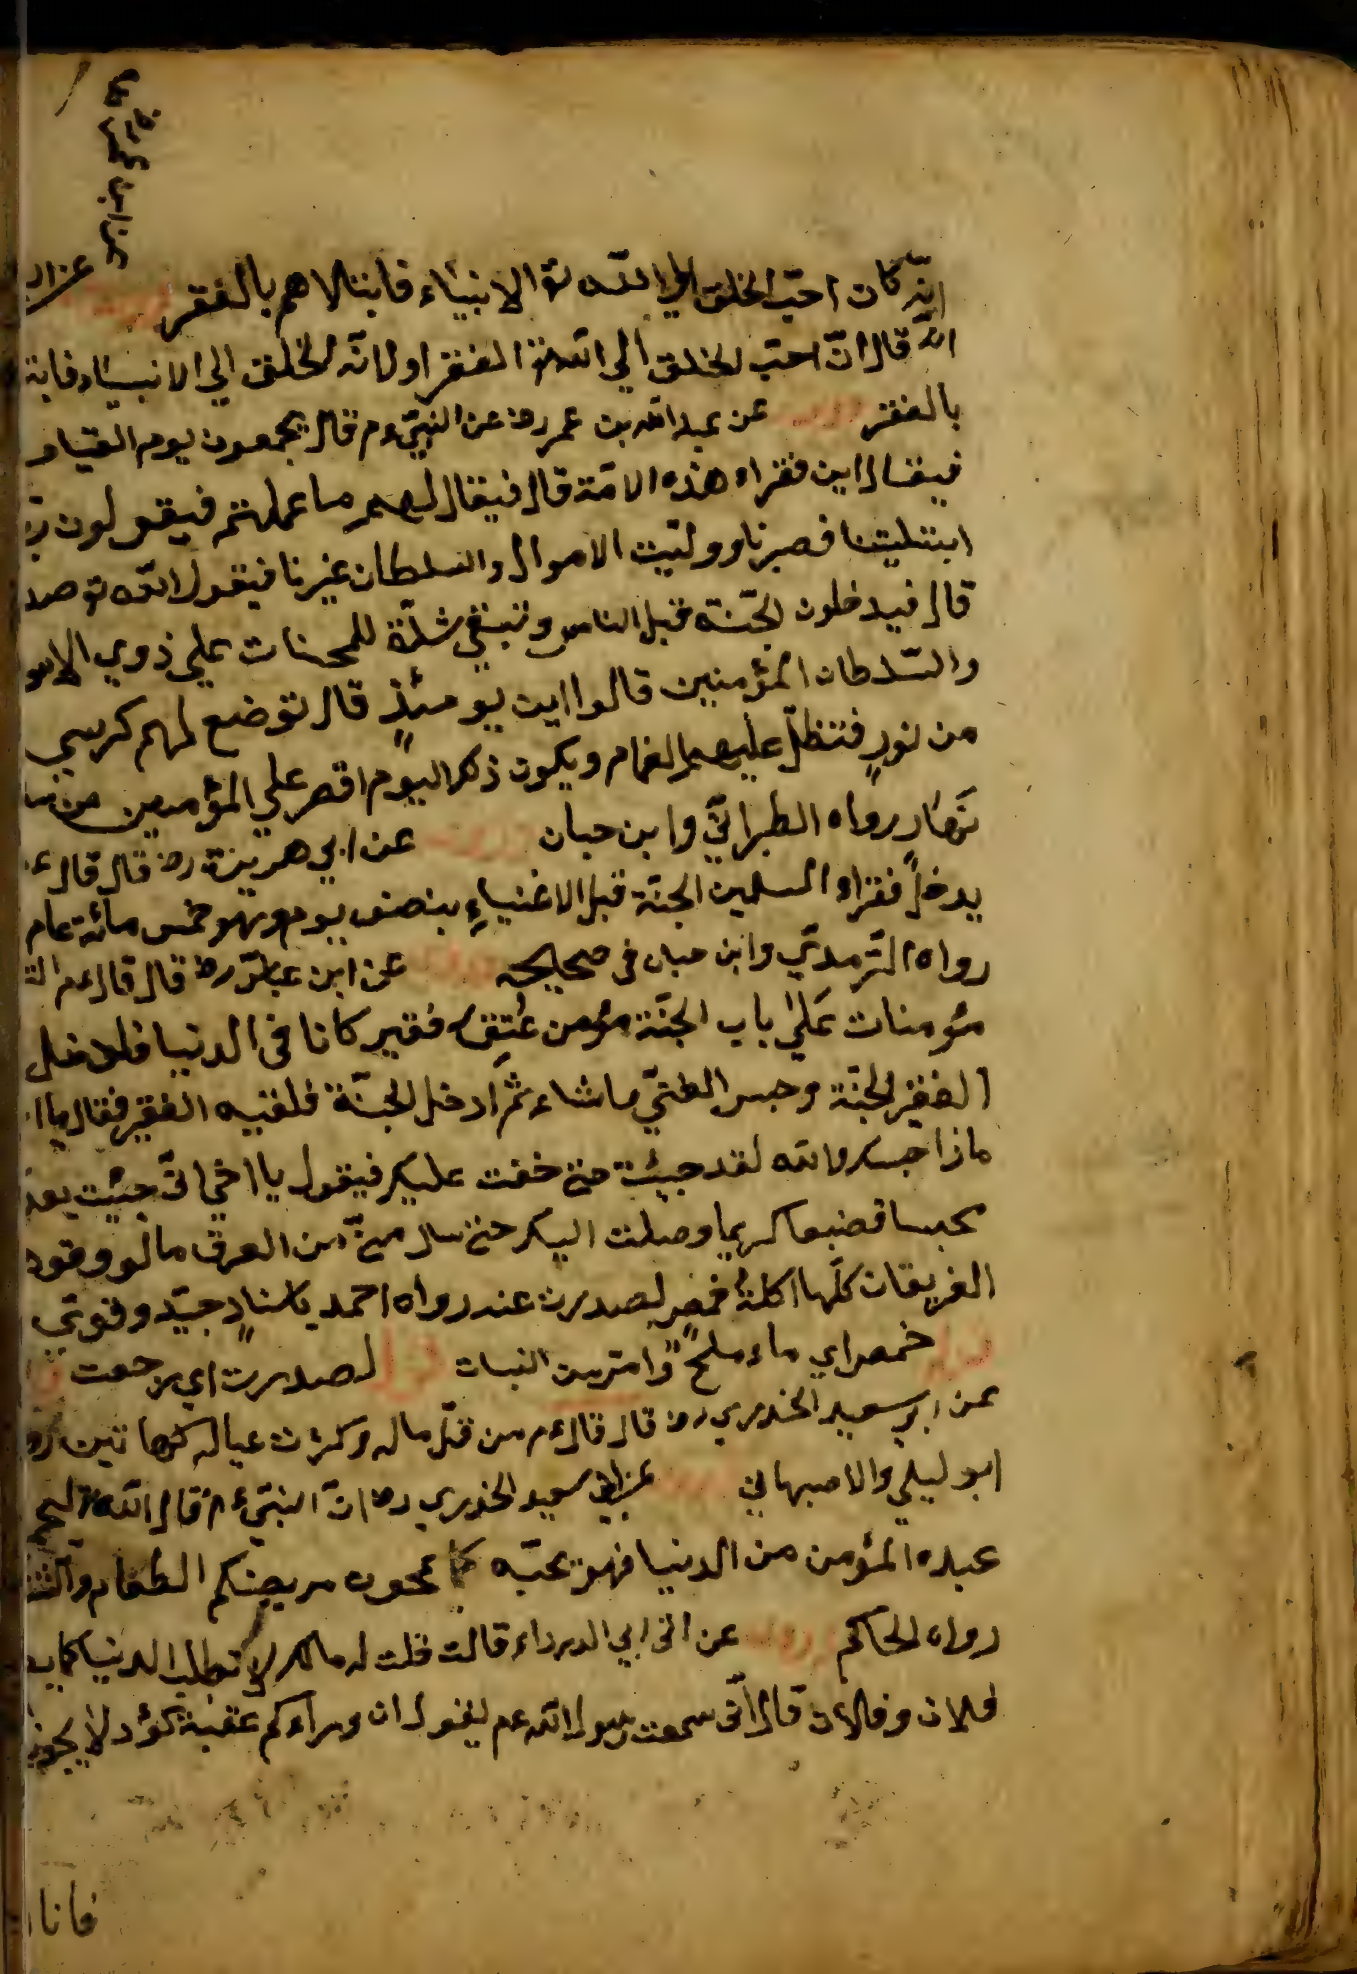 عن ابن
عن ال
انه كان احبّ الخلق الي الله تع الانبياء فابتلاهم بالفقر
انه قال انّ احبّ الخلق الي الله تع الفقراء لانه الخلق الي الانبياء فابت
بالفقر وروي عن عبد الله بن عمر رض عن النبيّ عم قال يجمعون يوم القيام
فيقال اين فقراء هذه الامّة قال فيقال لهم ما عملتم فيقولون ربّ
ابتليتنا فصبرنا ووليّت الاموال والسلطان غيرنا فيقول الله تع صد
قال فيدخلون الجنّة قبل الناس وتبقي شدّة للحسنات علي ذوي الامو
والسّلطان المؤمنين قالوا اين يومئذٍ قال توضع لهم كرسي
من نورٍ فتظلّ عليهم الغمام ويكون ذلك اليوم اقصر علي المؤمنين من سا
نَهَار رواه الطبرانيّ وابن حبان وروي عن ابي هريرة رض قال قال ع
يدخل فقراء المسلمين الجنّة قبل الاغنياءِ بنصف يوم وهو خمس مائة عام
رواه الترمديّ وابن حبان في صحيحه وروي عن ابن عباس رض قال قال عم الت
مؤمنات عَلَي باب الجنّة مؤمن غني فقير كانا في الدنيا فادخل
الفقير الجنّة وحبس الغنيّ ما شاء ثمّ ادخل الجنّة فلقيه الفقير فقال يا ا
ماذا حبسك والله لقد حبست حتي خفت عليك فيقول يا اخي انّي حبست بعد
محبسا فضيعا كريها وصلت اليك حتي سال منّي من العرق ما لو وقود
الفريقان كلّها اكلة خمص لصدرت عند رواه احمد باسنادٍ جيّد وقوي
قوله خمص اي ماء ملحٌ وامرّ من النبات قوله لصدرت اي رجعت
عن ابي سعيد الخدري رض قال قال عم من قلّ ماله وكثرت عياله كهاتين رو
ابو ليلي والاصبهاني وروي عن ابي سعيد الخدري رض انّ النبيّ عم قال انّ الله تع ليحم
عبده المؤمن من الدنيا فهو يحبّه كما تحمون مريضكم الطعام والش
رواه الحاكم وروي عن ام ابي الدرداء قالت قلت له مالك لا تطلب الدنيا كما يط
فلان وفلان قال انّي سمعت رسول الله عم يقول ان وراءكم عقبة كؤد لا يجوز
فانا